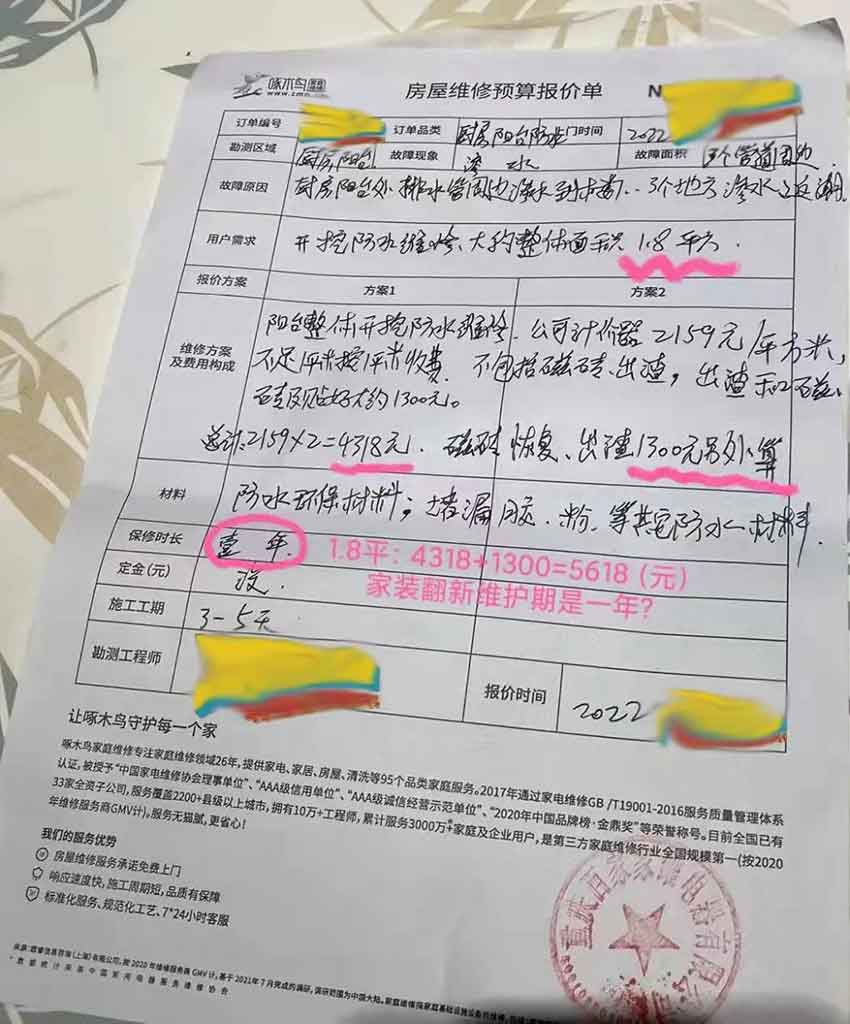 啄木鸟
房屋维修预算报价单
N
订单编号
订单品类 厨房阳台防水
门时间 2022
勘测区域 厨房阳台
故障现象 渗水
故障面积 3个管道周边
故障原因 厨房阳台处排水管周边渗水到楼下..3个地方渗水返潮
用户需求 开挖防水维修、大约整体面积 1.8平方.
报价方案 方案1 方案2
维修方案及费用构成
阳台整体开挖防水维修.公司计价器2159元/平方米,
不足1平米按1平米收费. 不包括磁砖、出渣, 出渣和磁
砖及贴好大约1300元。
总计:2159×2=4318元. 磁砖恢复、出渣1300元另外算
材料 防水环保材料; 堵漏胶.粉.等其它防水材料.
保修时长 壹年.
1.8平:4318+1300=5618(元)
家装翻新维护期是一年?
定金(元) 没.
施工工期 3-5天
勘测工程师
报价时间 2022
让啄木鸟守护每一个家
啄木鸟家庭维修专注家庭维修领域26年, 提供家电、家居、房屋、清洗等95个品类家庭服务。2017年通过家电维修GB /T19001-2016服务质量管理体系
认证, 被授予“中国家电维修协会理事单位”、“AAA级信用单位”、“AAA级诚信经营示范单位”、“2020年中国品牌榜·金鼎奖”等荣誉称号。目前全国已有
33家全资子公司, 服务覆盖2200+县级以上城市, 拥有10万+工程师, 累计服务3000万+家庭及企业用户, 是第三方家庭维修行业全国规模第一(按2020
年维修服务商GMV计)。服务无猫腻, 更省心!
我们的服务优势
房屋维修服务承诺免费上门
响应速度快, 施工周期短, 品质有保障
标准化服务、规范化工艺、7*24小时客服